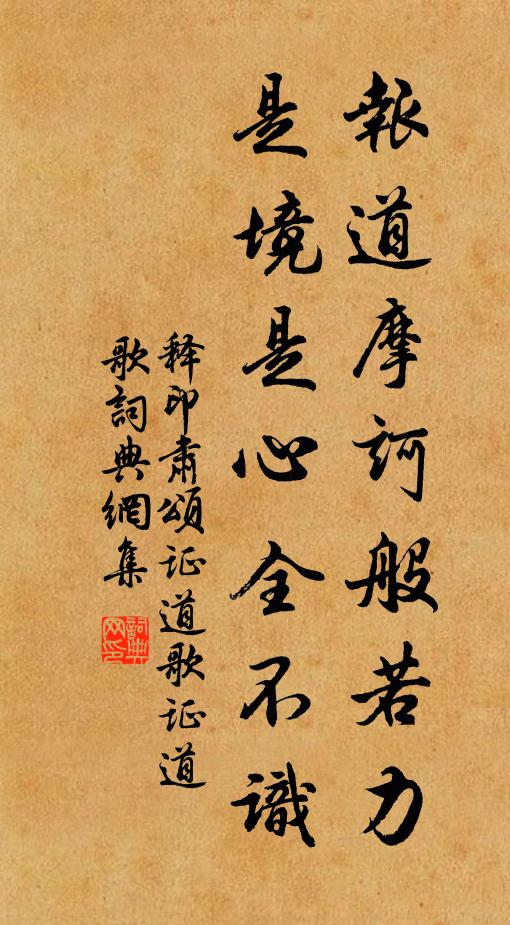 報道摩訶般若力
是境是心全不識
释印肅頌证道歌证道
歌詞典網集
詞典网印